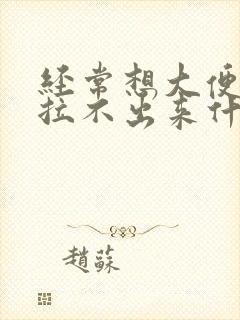 經常想大便
拉不出來什
趙蘇